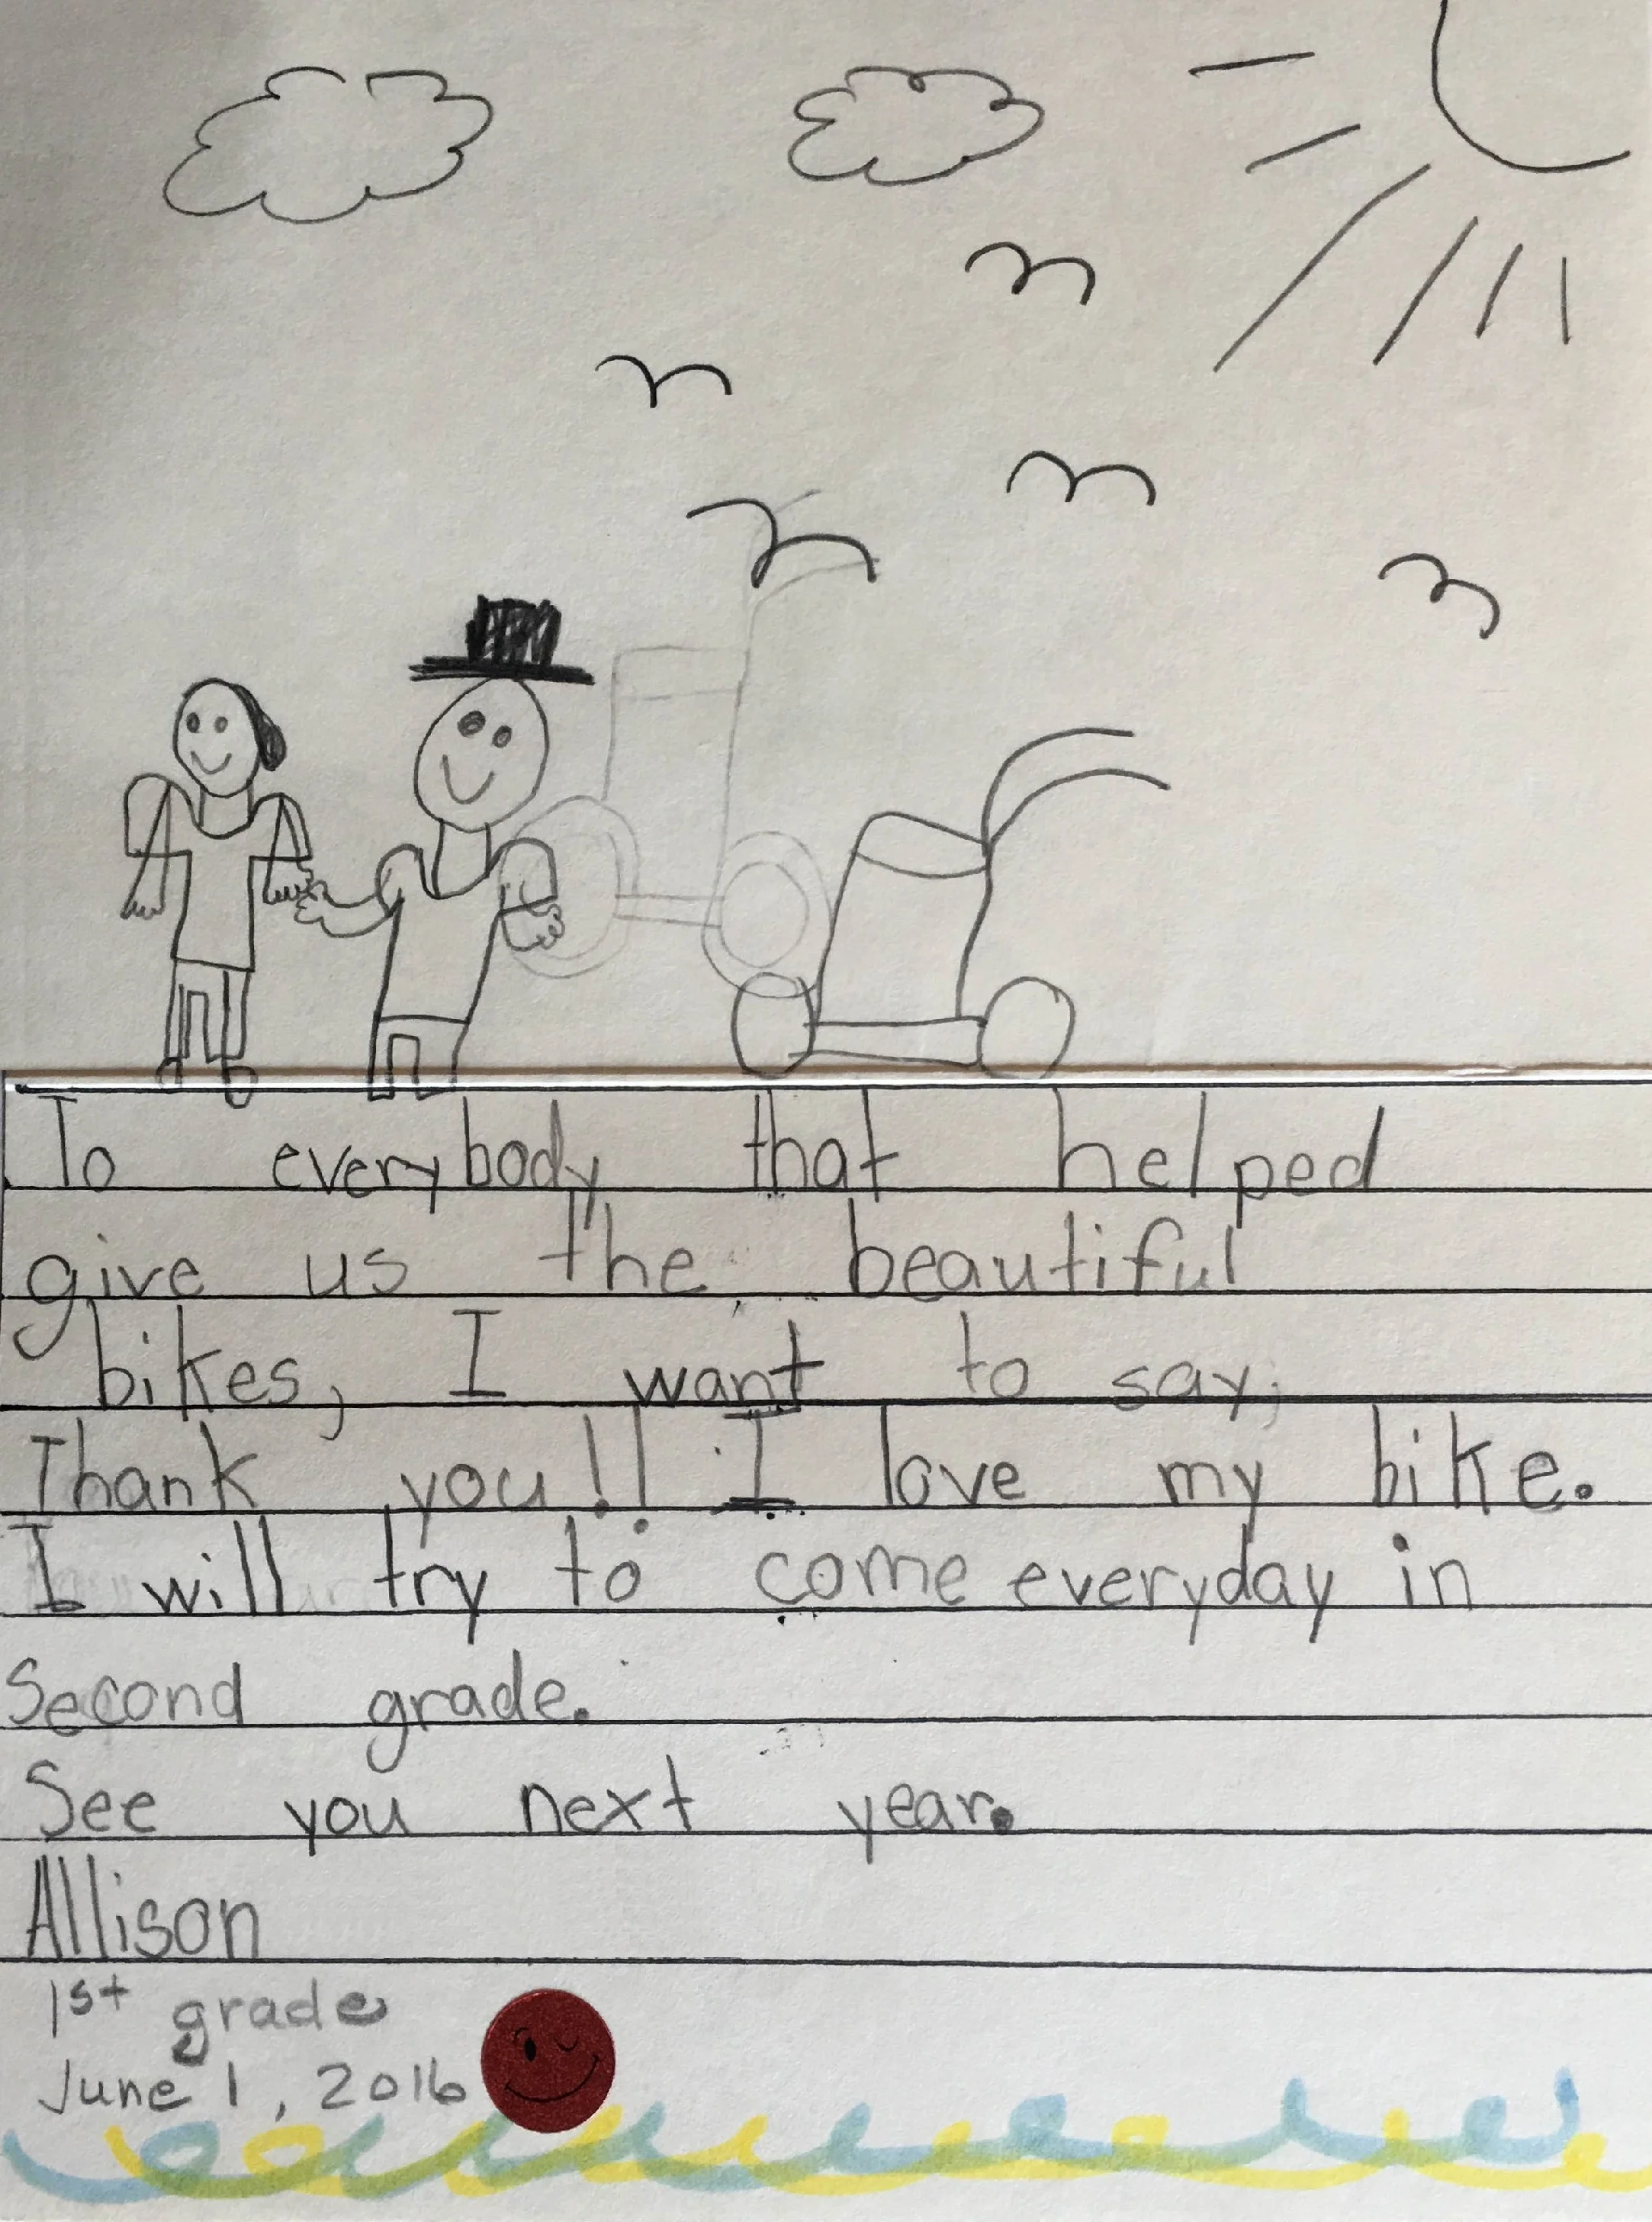 To everybody that helped
give us the beautiful
bikes, I want to say;
Thank you!! I love my bike.
I will try to come everyday in
Second grade.
See you next year.
Allison
1st grade
June 1, 2016